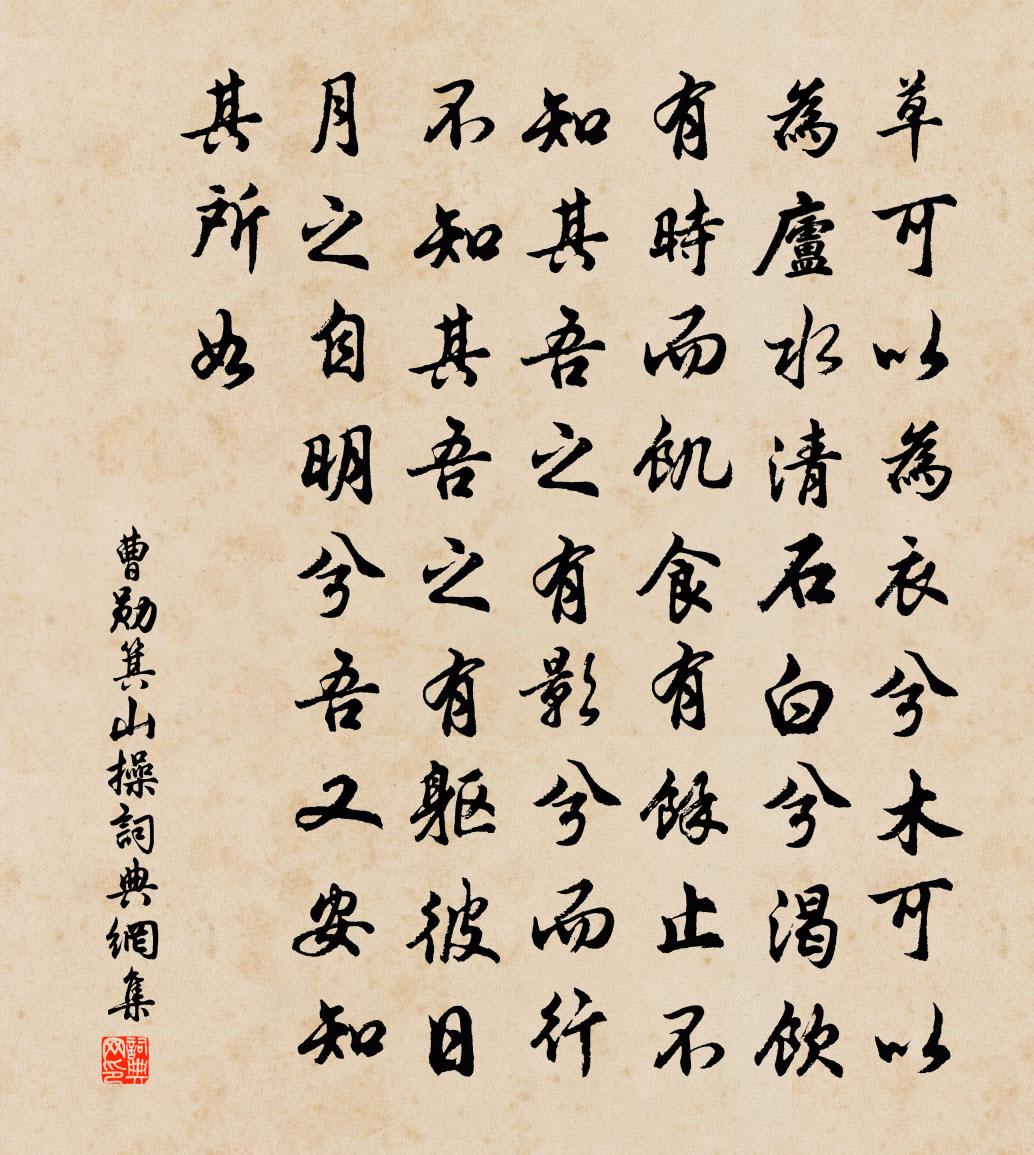 草可以為衣兮木可以
為廬水清石白兮渴飲
有時而飢食有餘止不
知其吾之有影兮而行
不知其吾之有軀彼日
月之自明兮吾又安知
其所如
曹勛箕山操詞典網集
詞典网印